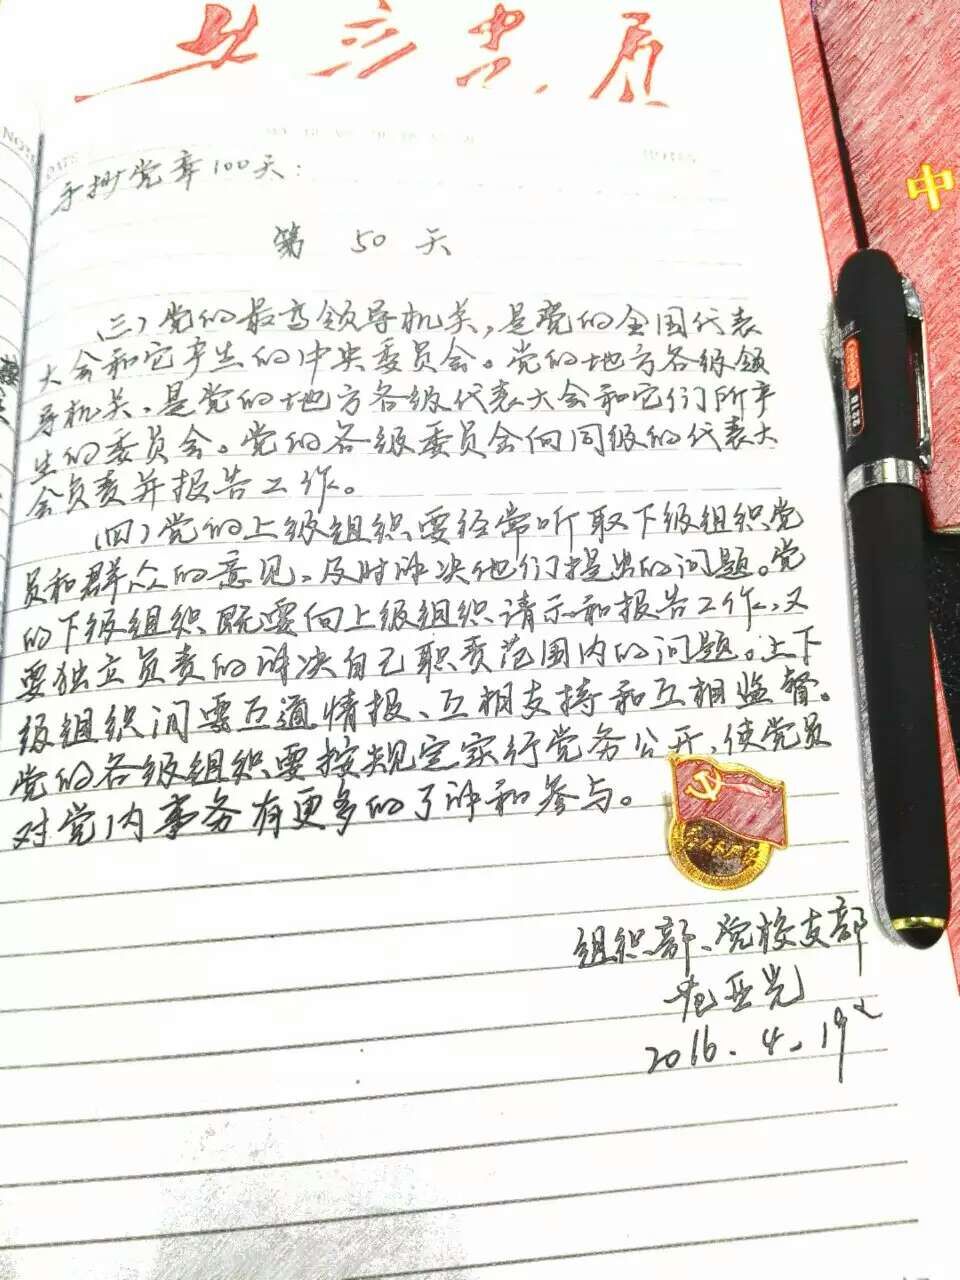 手抄党章100天:
第 50 天
(三)党的最高领导机关,是党的全国代表
大会和它产生的中央委员会。党的地方各级领
导机关,是党的地方各级代表大会和它们所产
生的委员会。党的各级委员会向同级的代表大
会负责并报告工作。
(四)党的上级组织要经常听取下级组织党
员和群众的意见、及时解决他们提出的问题。党
的下级组织既要向上级组织请示和报告工作,又
要独立负责的解决自己职责范围内的问题。上下
级组织间要互通情报、互相支持和互相监督。
党的各级组织要按规定实行党务公开,使党员
对党内事务有更多的了解和参与。
组织部、党校支部
亚光
2016.4.19
中